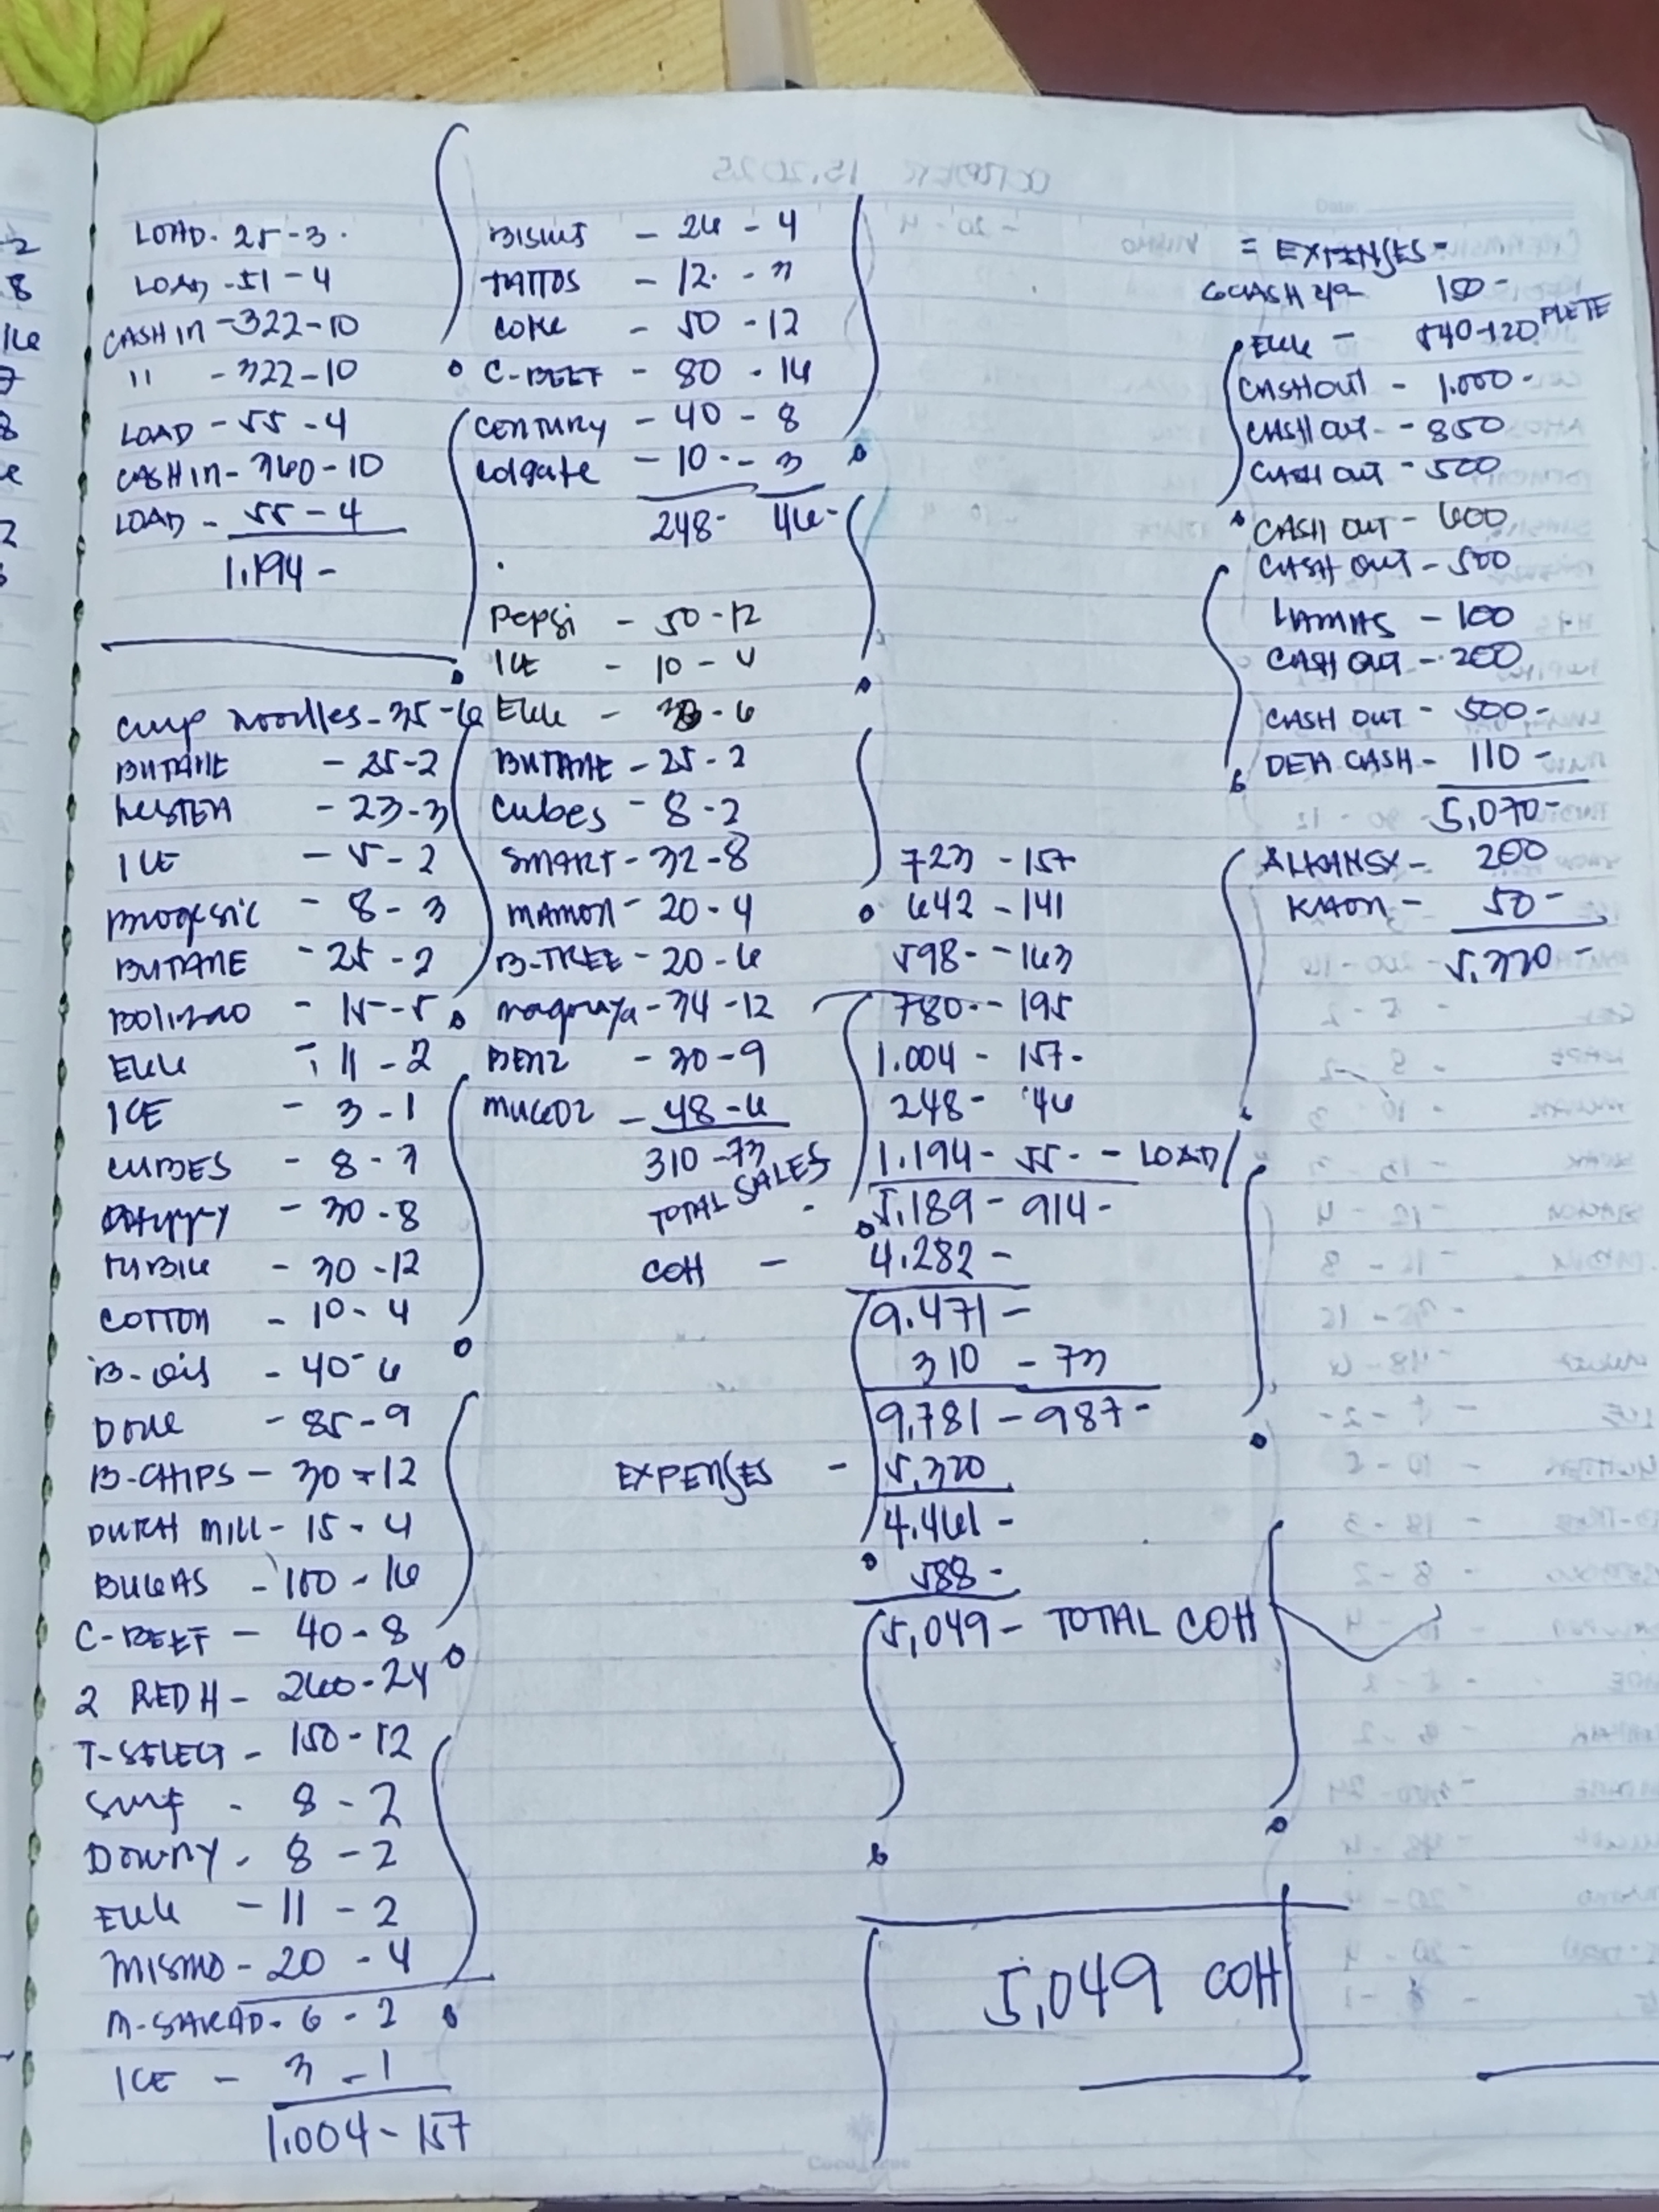 LOAD - 25 - 3
LOAD - 51 - 4
CASH IN - 322 - 10
11 - 322 - 10
LOAD - 55 - 4
CASH IN - 360 - 10
LOAD - 55 - 4
1,194 -
Cup noodles - 35 - 6
BUTANE - 25 - 2
NESTEA - 23 - 3
ICE - 5 - 2
BIOGESIC - 8 - 3
BUTANE - 25 - 2
- 15 - 5
EGG - 11 - 2
ICE - 3 - 1
CUBES - 8 - 3
- 30 - 8
- 30 - 12
COTTON - 10 - 4
B-OIL - 40 - 6
- 85 - 9
B-CHIPS - 30 - 12
DUTCH MILL - 15 - 4
BUGAS - 100 - 16
C-BEEF - 40 - 8
2 RED H - 260 - 24
T-SELECT - 150 - 12
SURF - 8 - 2
DOWNY - 8 - 2
EGG - 11 - 2
MISMO - 20 - 4
M-SARAP - 6 - 2
ICE - 3 - 1
1.004 - 157
- 26 - 4
TATTOS - 12 - 3
COKE - 50 - 12
C-BEEF - 80 - 16
CENTURY - 40 - 8
Colgate - 10 - 3
248 - 46 -
Pepsi - 50 - 12
ICE - 10 - 4
EGG - 33 - 6
BUTANE - 25 - 2
Cubes - 8 - 2
SMART - 32 - 8
MAMON - 20 - 4
B-TREE - 20 - 6
- 34 - 12
- 30 - 9
- 48 - 6
310 - 73
723 - 157
642 - 141
598 - 163
780 - 195
1.004 - 157 -
248 - 46
1.194 - 55 - - LOAD
TOTAL SALES - 5,189 - 914 -
COH - 4.282 -
9.471 -
310 - 73
9,781 - 987 -
EXPENSES - 5,320
4.461 -
588 -
5,049 - TOTAL COH
5,049 COH
= EXPENSES -
GCASH 150 -
EGG - 540 + 20 PLETE
CASH OUT - 1.000 -
CASH OUT - 850
CASH OUT - 500
CASH OUT - 600
CASH OUT - 500
LAMAS - 100
CASH OUT - 200
CASH OUT - 500 -
CASH - 110 -
5,070 -
ALKANSY - 200
KAON - 50 -
5,320 -